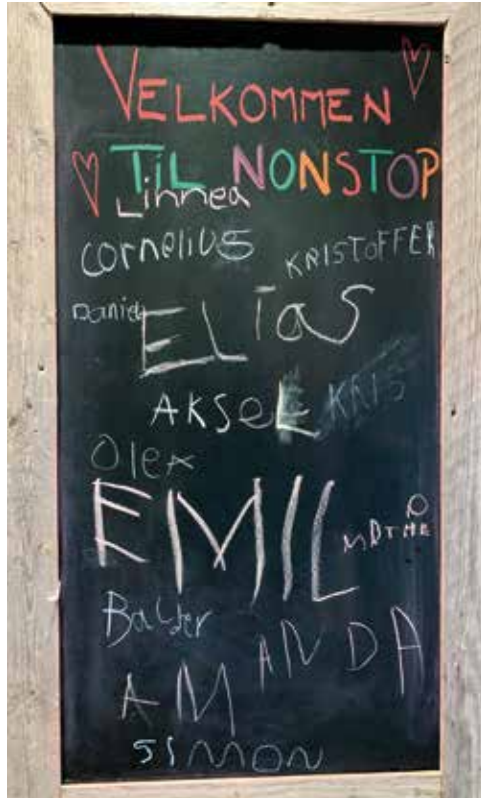 VELKOMMEN
TiL NONSTOP
Linnea
cornelius
KRISTOFFER
Daniel
ELiaS
AKSeL KRIS
Olex
EMIL
Balder
AMANDA
SiMON